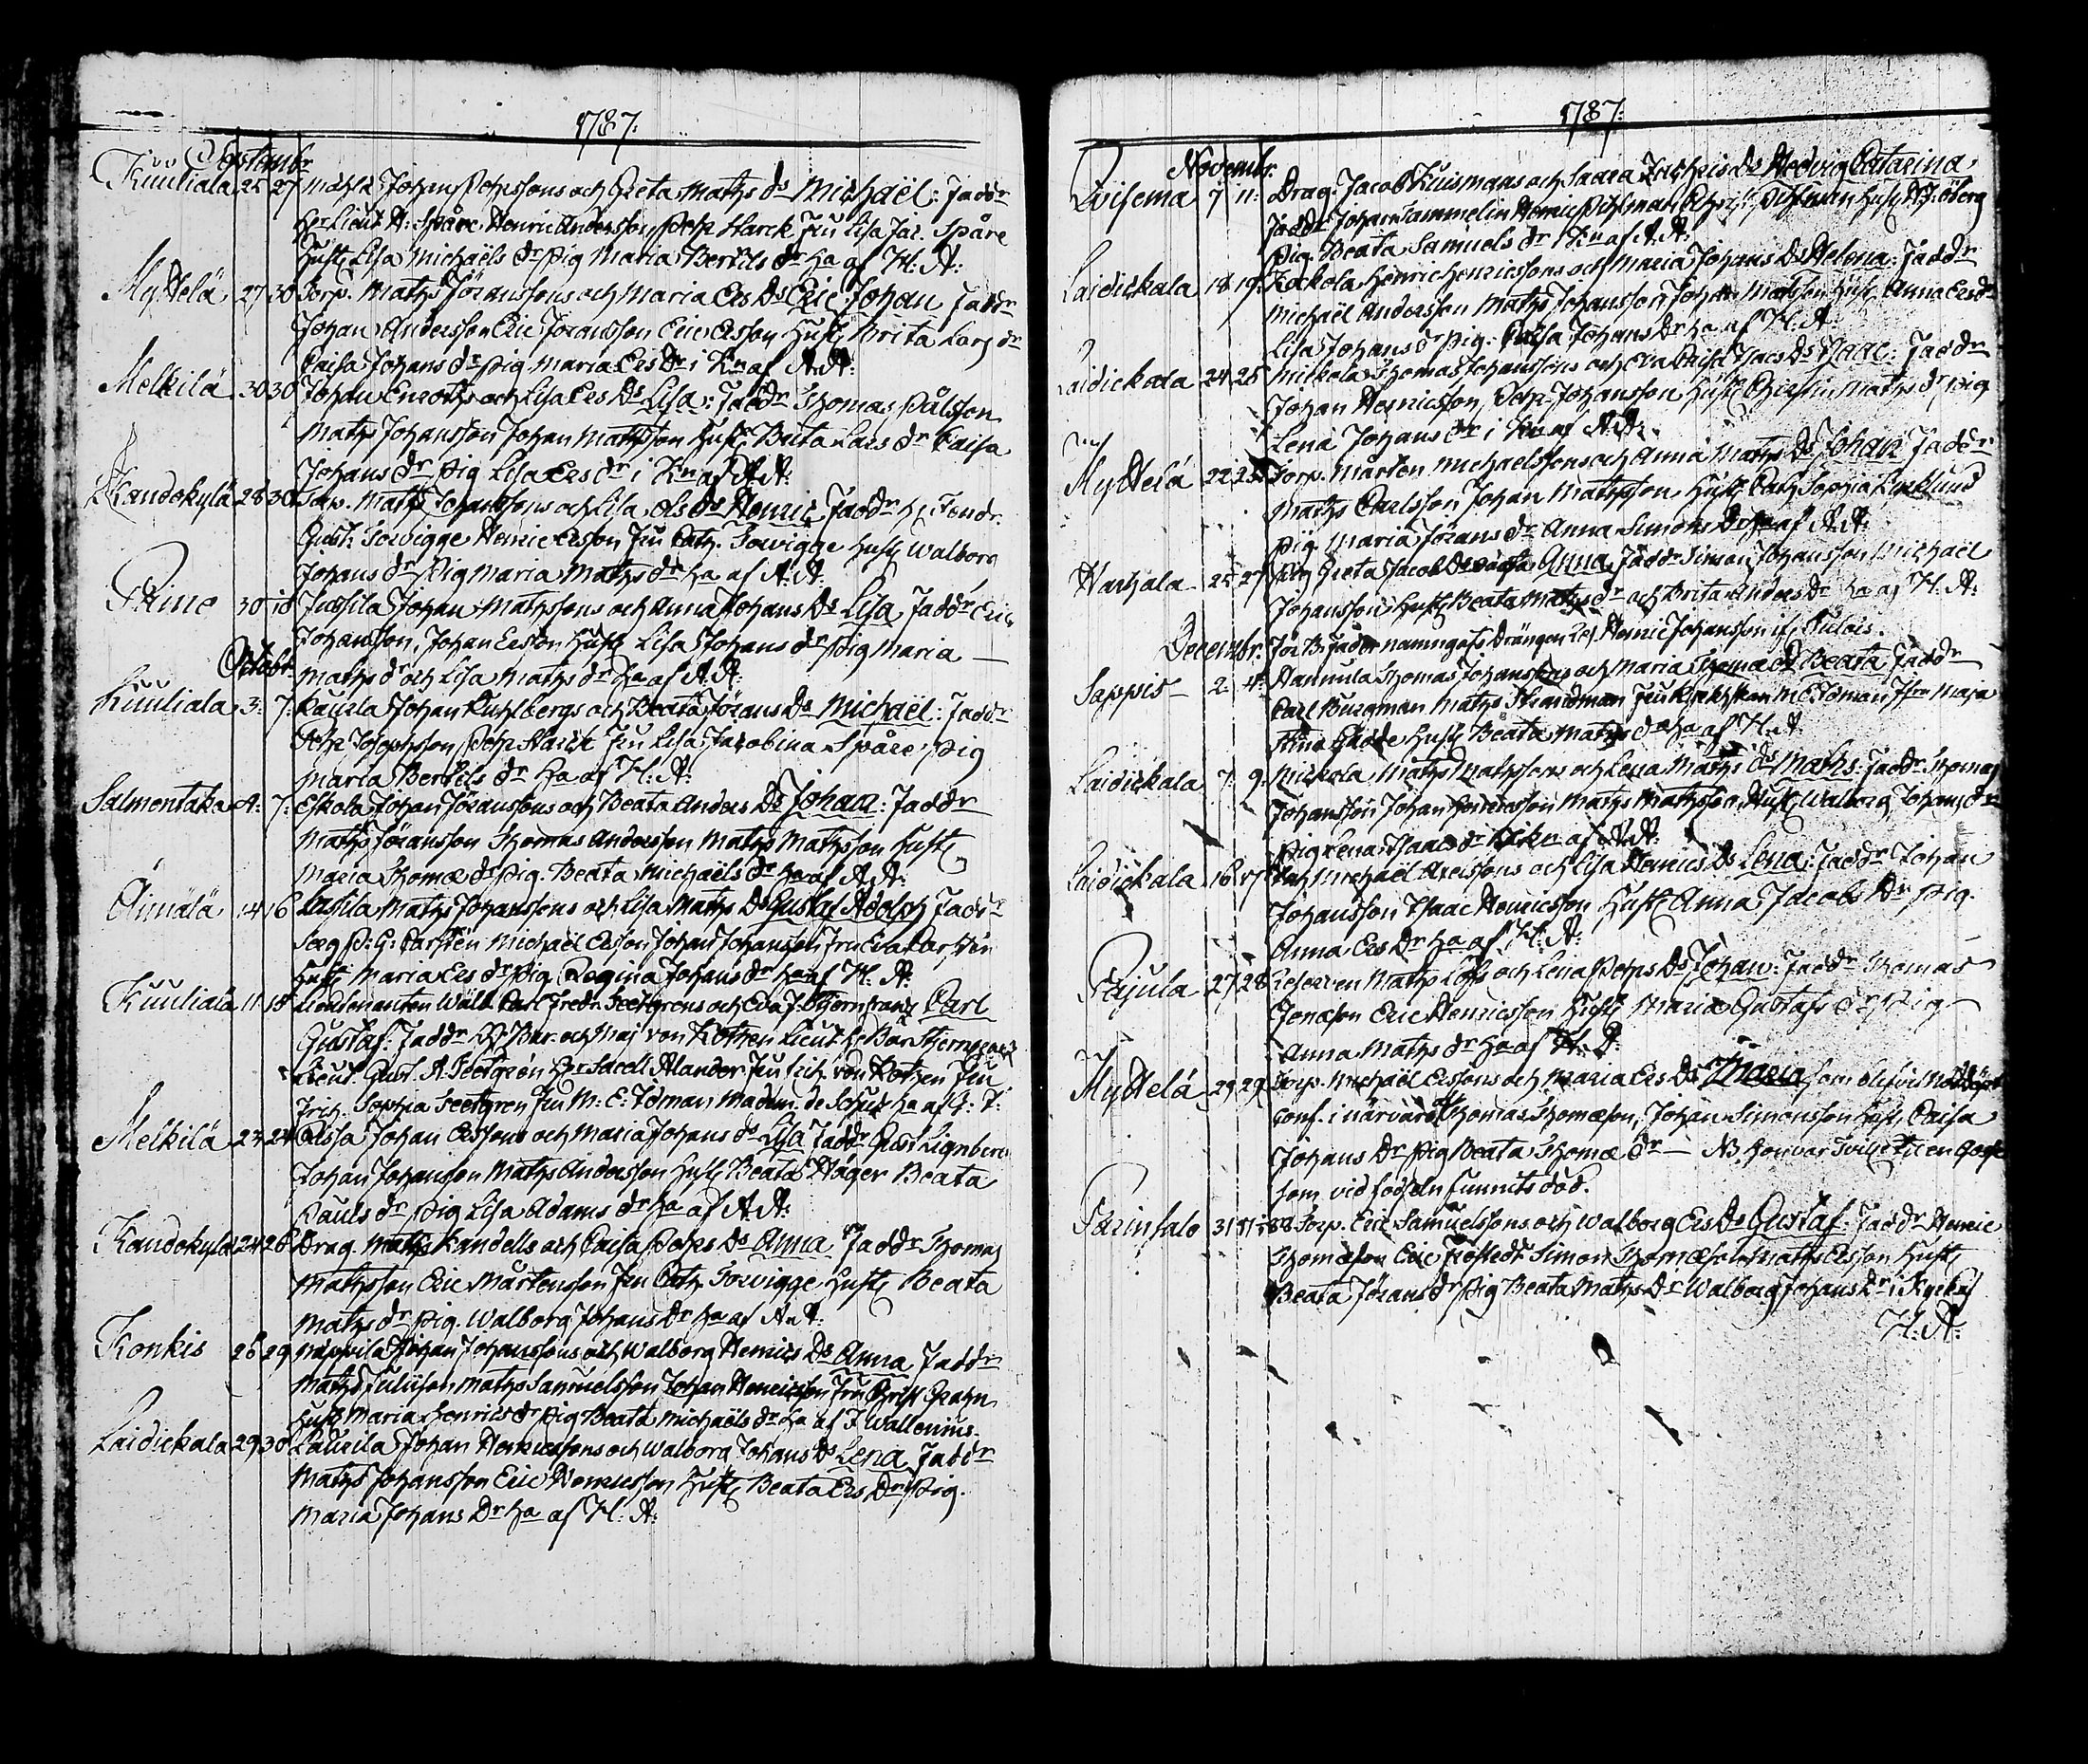 1787.
Septembr
Kuuliala 25 27 Johan Pehrssons och Greta Maths Dr Michaël: Faddr
Hr Lieut A: Spåre Henric Andersson Pehr Harck Fru Lisa Jac. Spåre
Hust: Lisa Michaëls dr Pig Maria Bertils dr ha af H: A:
Myttelä 27 30 Torp. Maths Göranssons och Maria Ers Dr Eric Johan Faddr
Johan Andersson Eric Göransson Eric Ersson Hust: Brita Lars dr
Caisa Johans dr Pig Maria Ers Dr i Kn af A: A:
Melkilä 30 30 Johan Enroths och Lisa Ers Dr Lisa: Faddr Thomas Pålsson
Maths Johansson Johan Mathsson Hust: Brita Lars dr Caisa
Johans dr Pig Lisa Ers dr i Kn af A: A:
Kandokylä 28 30 Maths Johanssons och Lisa Dr Henric Faddr H: Fendr.
Gust: Torwigge Henric Ersson Fru Cath. Torwigge Hust: Walborg
Johans dr Pig Maria Maths dr ha af A: A:
30 Jussila Johan Mathssons och Anna Johans Dr Lisa Faddr Eric
Johansson, Johan Ersson Hust: Lisa Johans dr Pig Maria
Octobr.
Maths dr och Lisa Maths dr ha af A: A:
Kuuliala 3: 7: Johan Kuhlbergs och Beata Görans Dr Michaël: Faddr
Pehr Josephsson Pehr Harck Fru Lisa Jacobina Spåre, Pig
Maria Bertils dr ha af H: A:
Salmentaka 4: 7: Eskola Johan Göranssons och Beata Anders Dr Johan: Faddr
Maths Göransson Thomas Andersson Maths Mathsson Hust:
Maria Thomæ dr Pig. Beata Michaëls dr ha af A: A:
Äimälä 14 16 Lassila Maths Johanssons och Lisa Maths Dr Gustaf Adolph Faddr
Serg P: G: Carstén Michaël Ersson Johan Johansson Fru Eva Carstén
Hust: Maria Ers dr Pig. Regina Johans dr ha af H: A:
Kuuliala 11 15 Lieutenanten Wälb Carl Fredr. Seetgrens och Eva J. Stjernkrantz Carl
Gustaf: Faddr Bar. och Maj von Kothen Lieut: H: Bar Stjernkrantz
Lieut. Gust. A Seetgrén Hr Sacell Alander Fru Frih. von Kothen Fru
Frih. Sophia Seetgren Fru M: E: Idman Madm. de Schul ha af J: T:
Melkilä 23 24 Johan Erssons och Maria Johans dr Lisa Faddr Gust Lignberg
Johan Johansson Maths Andersson Hust: Beata Häger Beata
Pauls dr Pig Lisa Adams dr ha af A: A:
Kandokylä 24 28 Drag. Maths Kandells och Caisa Pehrs Dr Anna Faddr Thomas
Mathsson Eric Mårtensson Fru Cath Torwigge Hust: Beata
Maths dr Pig. Walborg Johans Dr ha af A: A:
Konkis 26 29 Johan Johanssons och Walborg Henrics Dr Anna Faddr
Maths Juliison Maths Samuelsson Johan Henricsson Fru Grahn
Hust: Maria Henrics dr Pig Beata Michaëls dr ha af J Wallenius.
Laidickala 29 30 Laurila Johan Henricssons och Walborg Johans Dr Lena Faddr
Maths Johansson Eric Henricsson Hust: Beata Ers Dr Pig.
Maria Johans Dr ha af H: A:
1787:
Novembr.
7 11: Drag: Jacob Kuismans och Saara Dr Hedvig Catarina
Faddr Johan Tammelin Henric Pihlman Pihlman Hust: Öberg
Pig. Beata Samuels dr i Kn af A: A:
Laidickala 18 19: Kockola Henric Henricssons och Maria Johans Dr Helena: Faddr
Michaël Andersson Maths Johansson Johan Matsson Hust: Anna Ers dr
Lisa Johans dr Pig: Caisa Johans Dr ha af H: A:
Laidickala 24 25 Nickola Thomas Johanssons och Eva Caisa Isacs Dr Isaac: Faddr
Johan Henricsson, Pehr Johansson Hust: Christin Maths dr Pig
Lena Johans dr i Kn af A: A:
Myttelä 22 25 Torp. Mårten Michaelssons och Anna Maths Dr Johan Faddr
Maths Carlsson Johan Mathsson Hust: Cath Sophia Lincklund
Pig. Maria Görans dr Anna Simons Dr ha af A: A:
Harhala 25 27 Pig Greta Jacobs Dr oächta Anna Faddr Simon Johansson Michaël
Johansson Hust: Beata Maths dr och Brita Anders Dr ha af H: A:
Decembr: För B: fader namngafs Drängen Henric Johansson if: Pulois.
Sappis 2: 4: Thomas Johanssons och Maria Thomæ dr Beata Faddr
Carl Burgman Maths Strandman Fru Idman Jfru Maja
Stina Hust: Beata Maths dr ha af H: A:
Laidickala 7. 9: Nickola Maths Mathssons och Lena Maths dr Maths: Faddr Thomas
Johansson Johan Henricsson Maths Mathsson Hust: Walborg Johans dr
Pig Lena Isaacs dr i Kn af A: A:
Laidickala 16 17 Michaël Axelssons och Lisa Henrics Dr Lena: Faddr Johan
Johansson Isaac Henricsson Hust: Anna Jacobs Dr Pig.
Anna Ers Dr ha af H: A:
Pajula 27 28 Reserven Maths Löfs och Lena Pehrs Dr Johan: Faddr Thomas
Jonæson Eric Henricsson Hust: Maria Gustafs dr Pig
Anna Maths dr ha af H: A:
Myttelä 29 29 Torp. Michaël Erssons och Maria Ers Dr Maria som blifvit Nöddöpt
conf. i närvaro af Thomas Thomæson, Johan Simonsson Hust: Caisa
Johans Dr Pig Beata Thomæ dr — NB Hon var Tvilge til en Gosse
som vid födseln funnits död.
Parinsalo 31 1/1 88 Torp. Eric Samuelssons och Walborg Ers Dr Gustaf: Faddr Henric
Thomæson Eric Frostedt Simon Thomæson Maths Ersson Hust:
Beata Görans dr Pig Beata Maths Dr Walborg Johans Dr i Kyrk af
H: A: